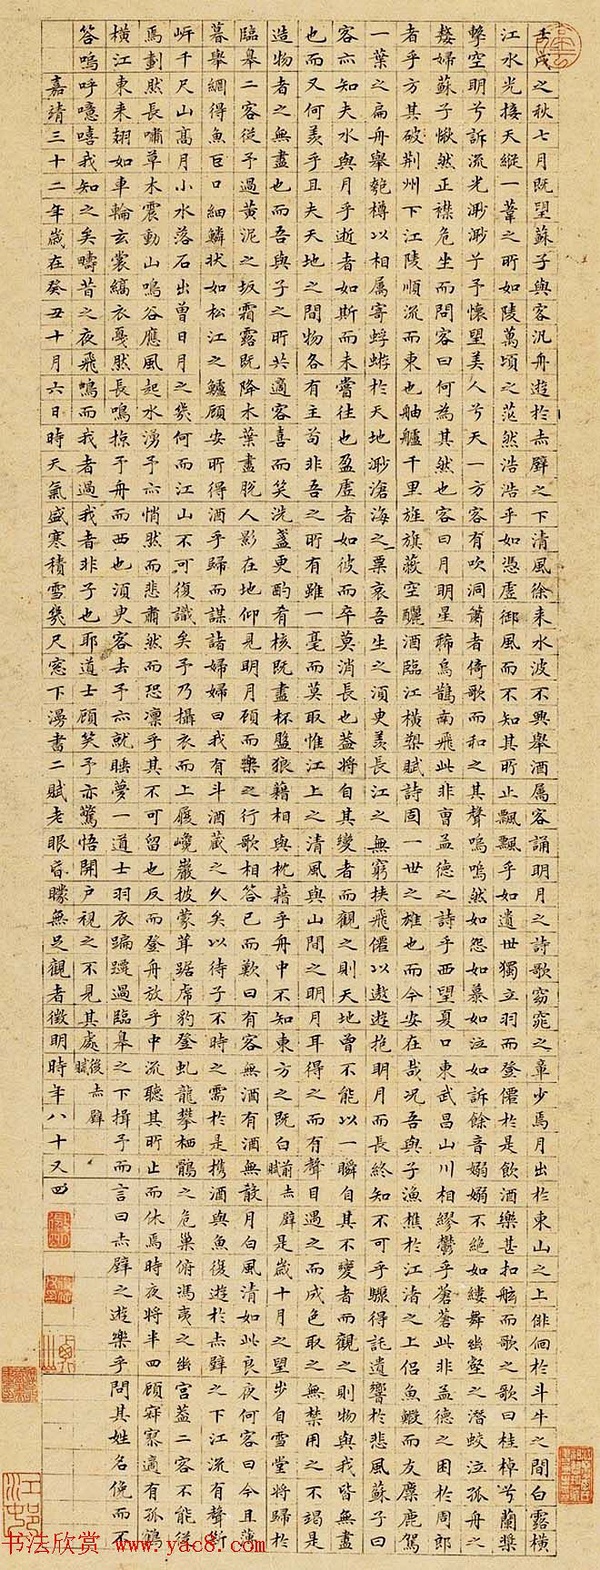 壬戌之秋七月既望蘇子與客汎舟遊於赤壁之下清風徐来水波不興舉酒属客誦明月之詩歌窈窕之章少焉月出於東山之上俳佪於斗牛之間白露橫
江水光接天縱一葦之所如陵萬頃之茫然浩浩乎如憑虛御風而不知其所止飄飄乎如遺世獨立羽而登僊於是飲酒樂甚扣舷而歌之歌曰桂棹兮蘭槳
擊空明兮訴流光渺渺兮予懷望美人兮天一方客有吹洞簫者倚歌而和之其聲嗚嗚然如怨如慕如泣如訴餘音嫋嫋不絕如縷舞幽壑之潛蛟泣孤舟之
嫠婦蘇子愀然正襟危坐而問客曰何為其然也客曰月明星稀烏鵲南飛此非曹孟德之詩乎西望夏口東武昌山川相繆鬱乎蒼蒼此非孟德之困於周郎
者乎方其破荆州下江陵順流而東也舳艫千里旌旗蔽空釃酒臨江橫槊賦詩固一世之雄也而今安在哉况吾與子漁樵於江渚之上侣魚蝦而友麋鹿駕
一葉之扁舟舉匏樽以相属寄蜉蝣於天地渺滄海之粟哀吾生之須臾羨長江之無窮扶飛僊以遨遊抱明月而長終知不可乎驟得託遺響於悲風蘇子曰
客亦知夫水與月乎逝者如斯而未嘗往也盈虛者如彼而卒莫消長也蓋將自其變者而觀之則天地曾不能以一瞬自其不變者而觀之則物與我皆無盡
也而又何羨乎且夫天地之間物各有主苟非吾之所有雖一毫而莫取惟江上之清風與山間之明月耳得之而有聲目遇之而成色取之無禁用之不竭是
造物者之無盡也而吾與子之所共適客喜而笑洗盞更酌肴核既盡杯盤狼藉相與枕藉乎舟中不知東方之既白前赤壁賦是歲十月之望步自雪堂將歸於
臨皋二客從予過黃泥之坂霜露既降木葉盡脫人影在地仰見明月顧而樂之行歌相答已而歎曰有客無酒有酒無殽月白風清如此良夜何客曰今且薄
暮舉網得魚巨口細鱗狀如松江之鱸顧安所得酒乎歸而謀諸婦婦曰我有斗酒藏之久矣以待子不時之需於是携酒與魚復遊於赤壁之下江流有聲斷
岸千尺山高月小水落石出曾日月之幾何而江山不可復識矣予乃攝衣而上履巉巖披蒙茸踞虎豹登虬龍攀栖鶻之危巢俯馮夷之幽宮蓋二客不能從
焉劃然長嘯草木震動山鳴谷應風起水湧予亦悄然而悲肅然而恐凛乎其不可留也反而登舟放乎中流聽其所止而休焉時夜將半四顧寂寥適有孤鶴
橫江東来翅如車輪玄裳縞衣戛然長鳴掠予舟而西也須臾客去予亦就睡夢一道士羽衣蹁躚過臨皋之下揖予而言曰赤壁之遊樂乎問其姓名俛而不
答嗚呼噫嘻我知之矣疇昔之夜飛鳴而我者過我者非子也耶道士顧笑予亦驚悟開户視之不見其處後赤壁賦
嘉靖三十二年歲在癸丑十月六日時天氣盛寒積雪幾尺窓下漫書二賦老眼昏矇無足觀者徵明時年八十又四
书法欣赏 www.yac8.com